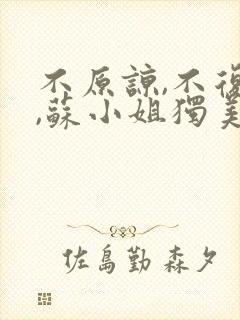 不原諒,不復
,蘇小姐獨美
佐島勤 森夕